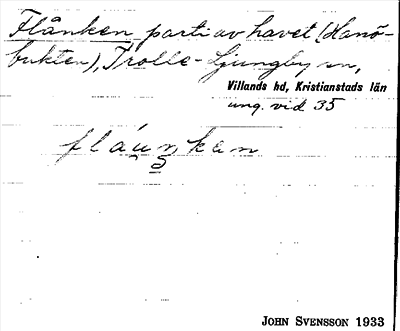 Flånken, parti av havet (Hanö-
bukten), Trolle-Ljungby sn,
Villands hd, Kristianstads län
ung. vid 35
fláunkan
JOHN SVENSSON 1933